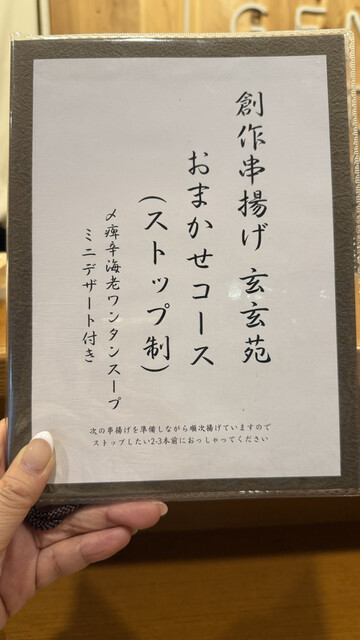 GEN
創作串揚げ 玄玄苑
おまかせコース
(ストップ制)
〆痺辛海老ワンタンスープ
ミニデザート付き
次の串揚げを準備しながら順次揚げていますので
ストップしたい2-3本前におっしゃってください